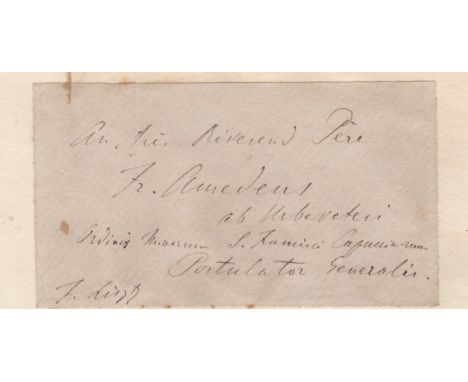 Au très Révérend Père
Fr. Amedeus
ab Urbeveteri
Ordinis Minorum S. Francisci Capucinorum
Postulator Generalis.
F. Liszt